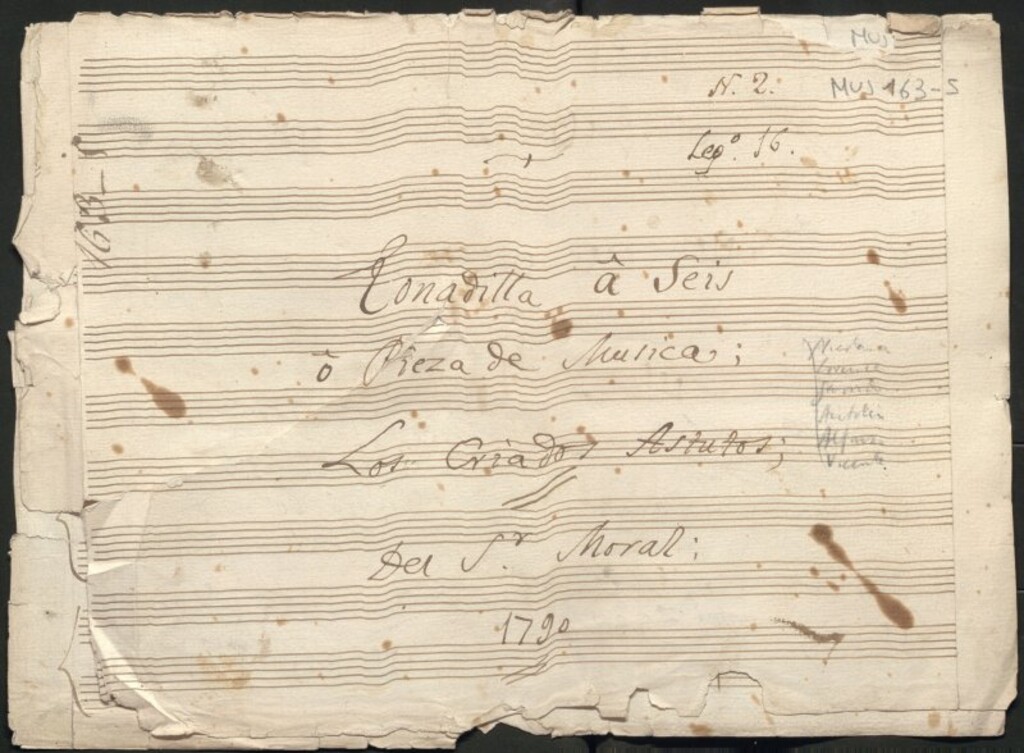 MUS
N. 2.
MUS 163-5
Leg.º 16.
163-5
Tonadilla â Seis
ô Pieza de Musica;
Los Criados Astutos;
Del S.r Moral;
1790
Vicente